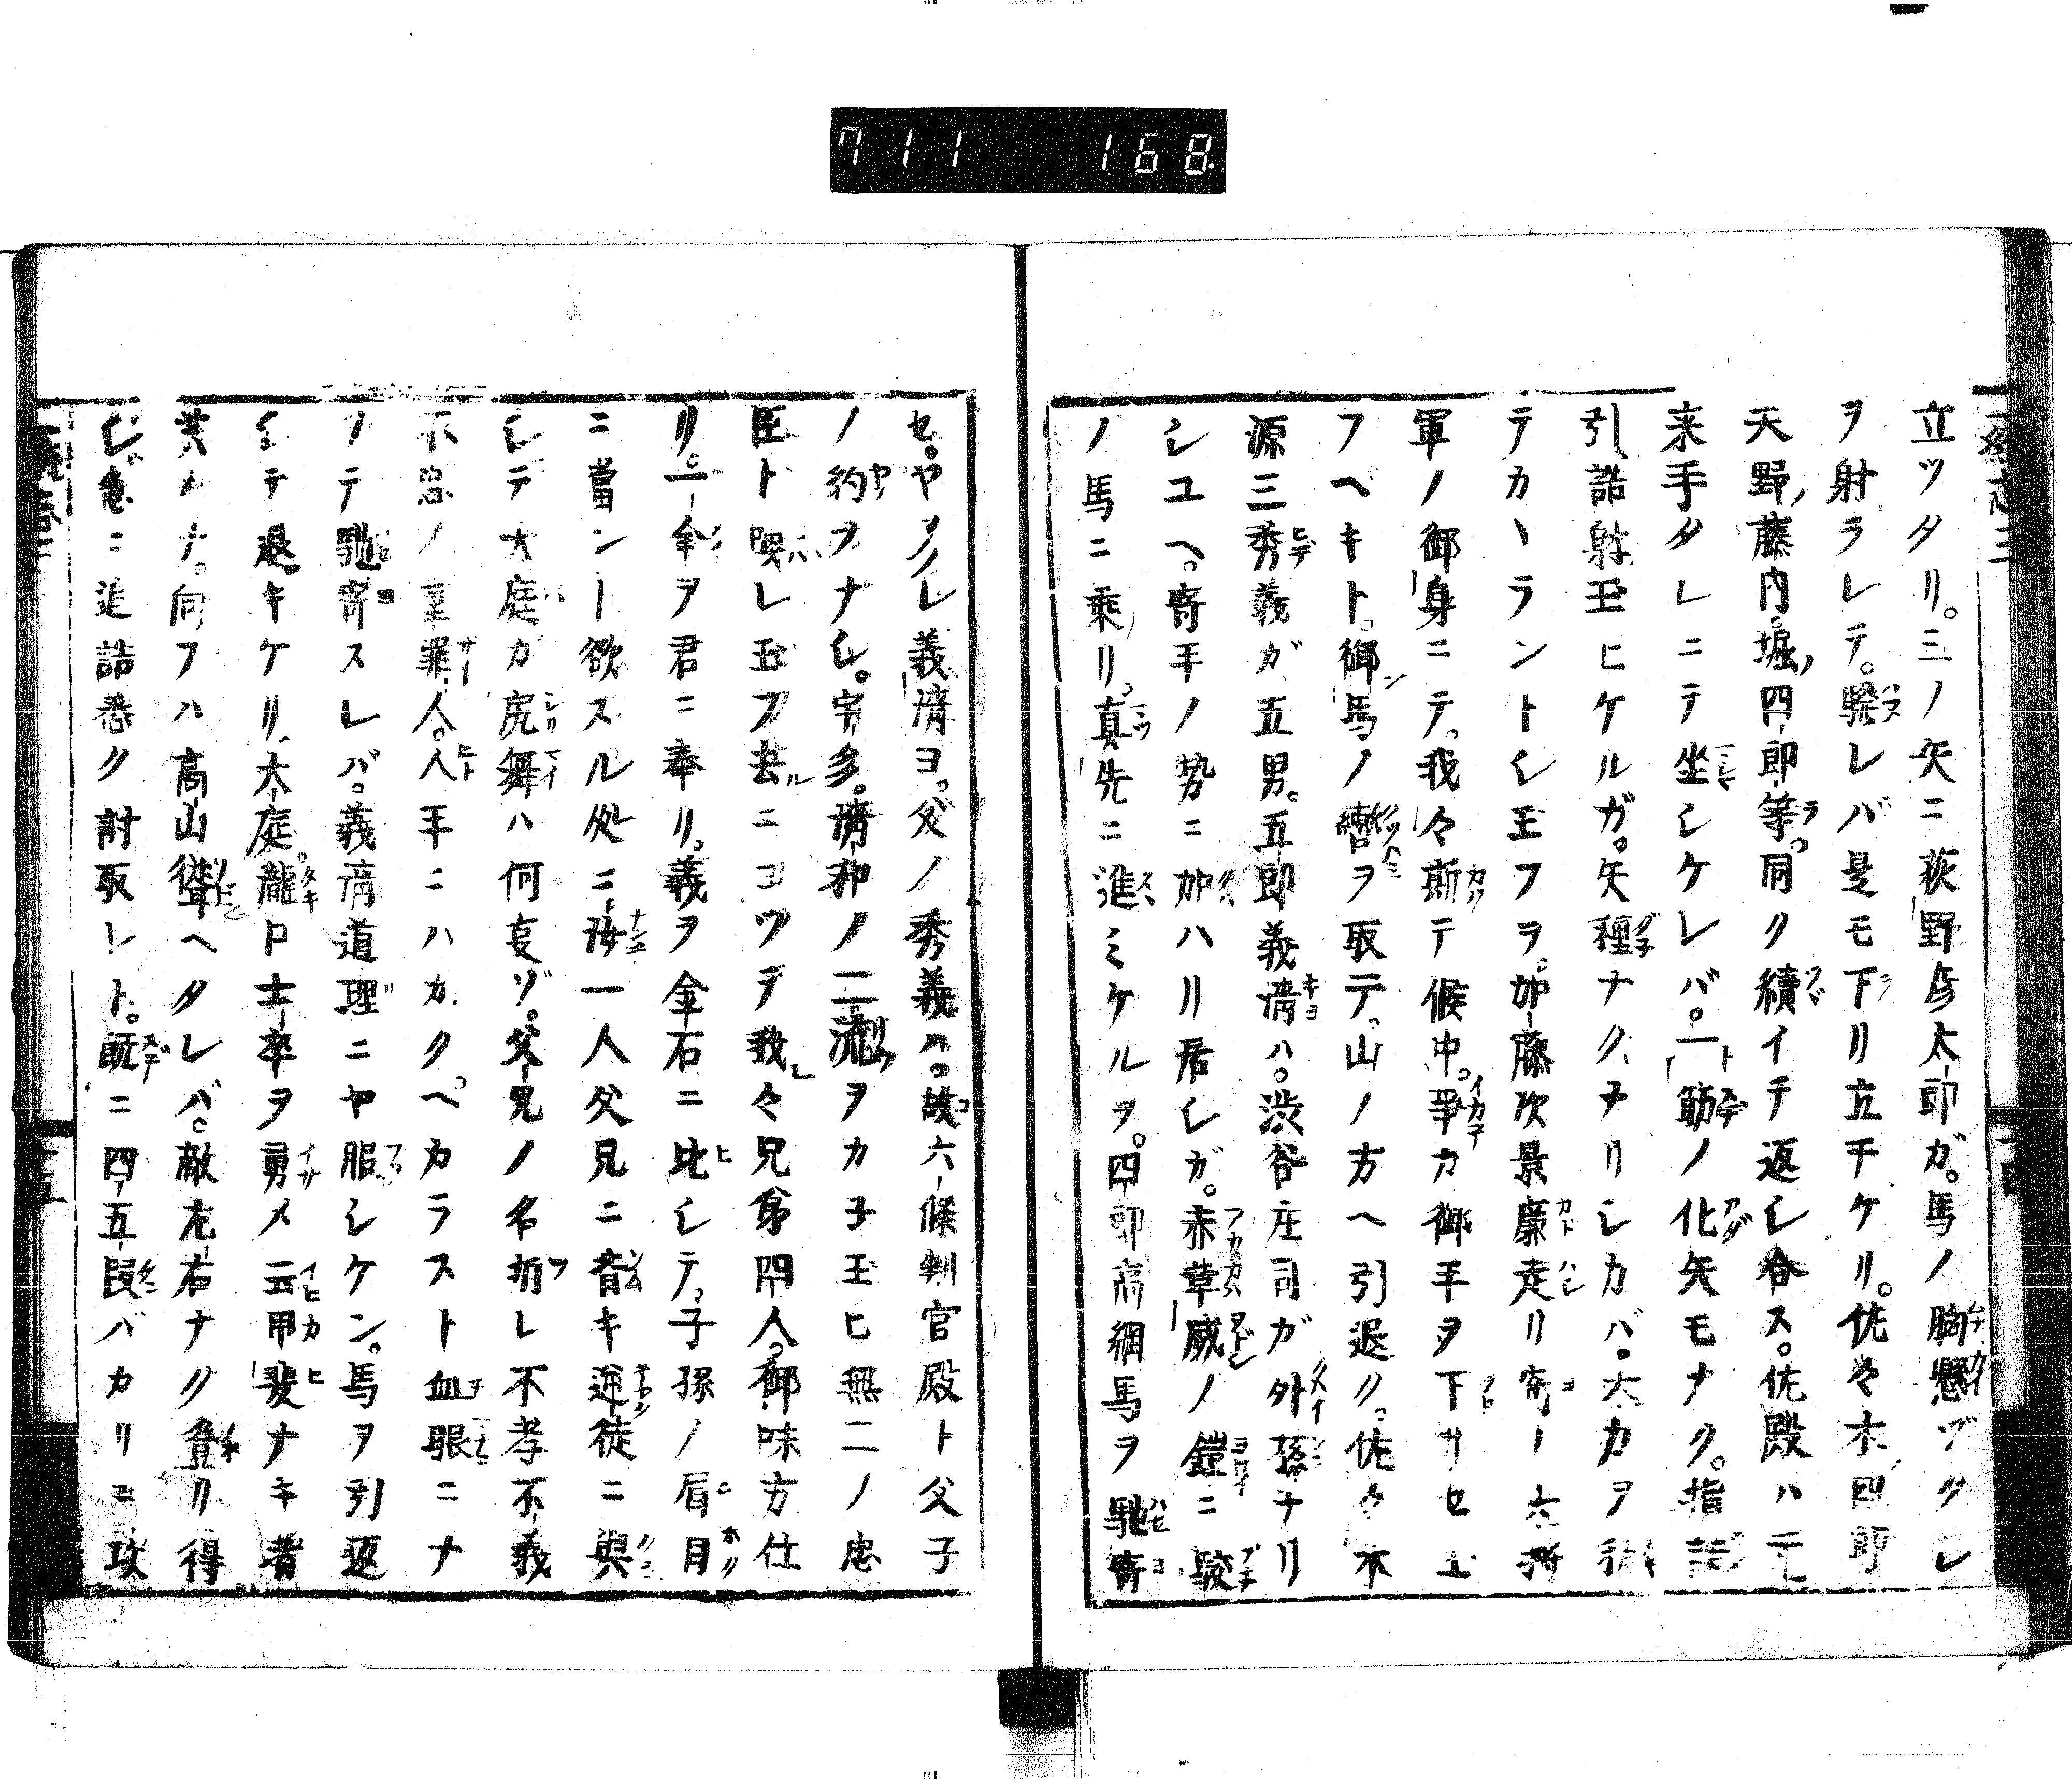 711 168
立ツタリ。三ノ矢ニ荻野彦太郎ガ。馬ノ胸懸ヅクレ
ヲ射ラレテ。騣レバ是モ下リ立チケリ。佐々木四郎
天野藤内。堀四郎等。同ク續イテ返シ合ス。佐殿ハ元
来手タレニテ坐シケレバ。一筋ノ化矢モナク。指詰
引詰射玉ヒケルガ。矢種ナクナリシカバ。太刀ヲ
テカヽラントシ玉フヲ。加藤次景廉走リ寄
軍ノ御身ニテ。我々斯テ候中。爭カ御手ヲ下サセ玉
フヘキト。御馬ノ轡ヲ取テ。山ノ方ヘ引退ク。佐々木
源三秀義ガ五男。五郎義清ハ。渋谷庄司ガ外孫ナリ
シユヘ。寄手ノ勢ニ加ハリ居シガ。赤革威ノ鎧ニ駮
ノ馬ニ乗リ。真先ニ進ミケルヲ。四郎高綱馬ヲ馳寄
セ。ヤヲレ義清ヨ。父ノ秀義ハ。故六條判官殿ト父子
ノ約ヲナシ。宇多。清和ノ二流ヲカ子玉ヒ無二ノ忠
臣ト喚レ玉フ。去ニヨツテ我々兄弟四人。御味方仕
リ。一命ヲ君ニ奉リ。義ヲ金石ニ比シテ。子孫ノ眉目
ニ當ント欲スル処ニ。汝一人父兄ニ背キ逆徒ニ與
シテ大庭カ尻舞ハ何叓ゾ。父兄ノ名折レ不孝不義
不忠ノ重罪人。人手ニハカクベカラスト血眼ニナ
ノテ馳寄スレバ。義清道理ニヤ服シケン。馬ヲ引返
シテ退キケリ。大庭。瀧口士卒ヲ勇メ云甲斐ナキ者
共カナ。向フハ高山聳ヘタレバ。敵左右ナク登リ得
ジ。急ニ追詰悉ク討取レト。既ニ四五段バカリニ攻